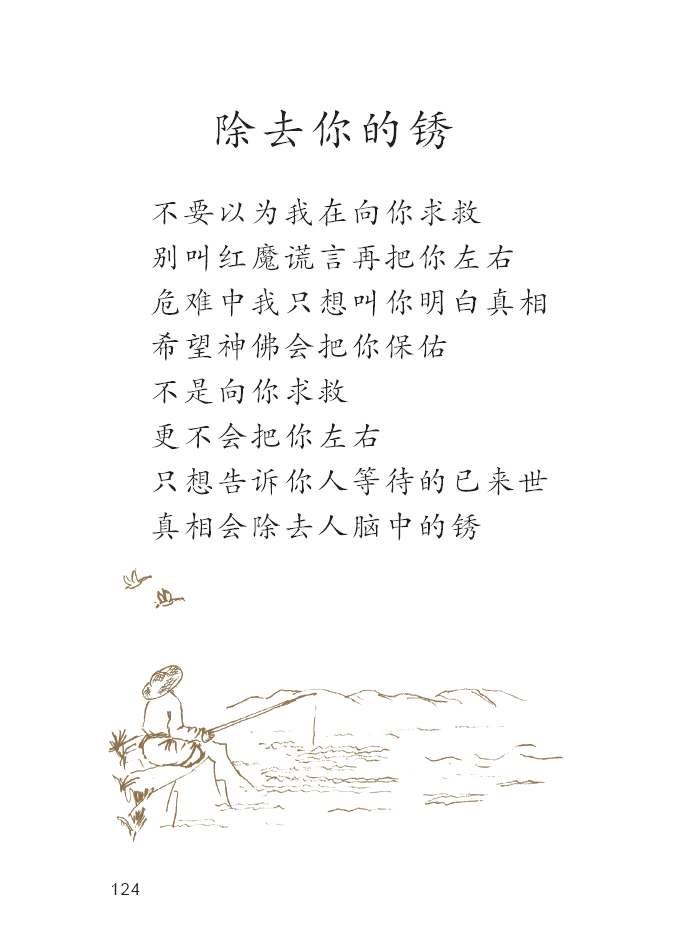 除去你的锈
不要以为我在向你求救
别叫红魔谎言再把你左右
危难中我只想叫你明白真相
希望神佛会把你保佑
不是向你求救
更不会把你左右
只想告诉你人等待的已来世
真相会除去人脑中的锈
124